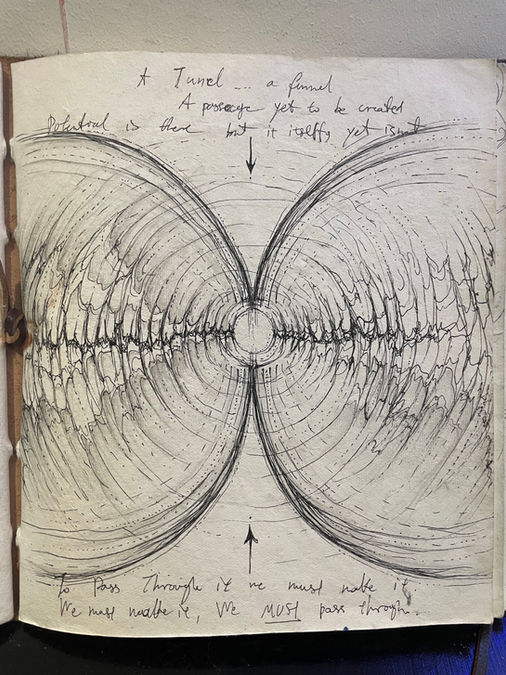 A Tunel ... a funnel
A passage yet to be created
Potential is there but it itself yet isnt
To Pass Through it we must make it
We must make it, We MUST pass through.